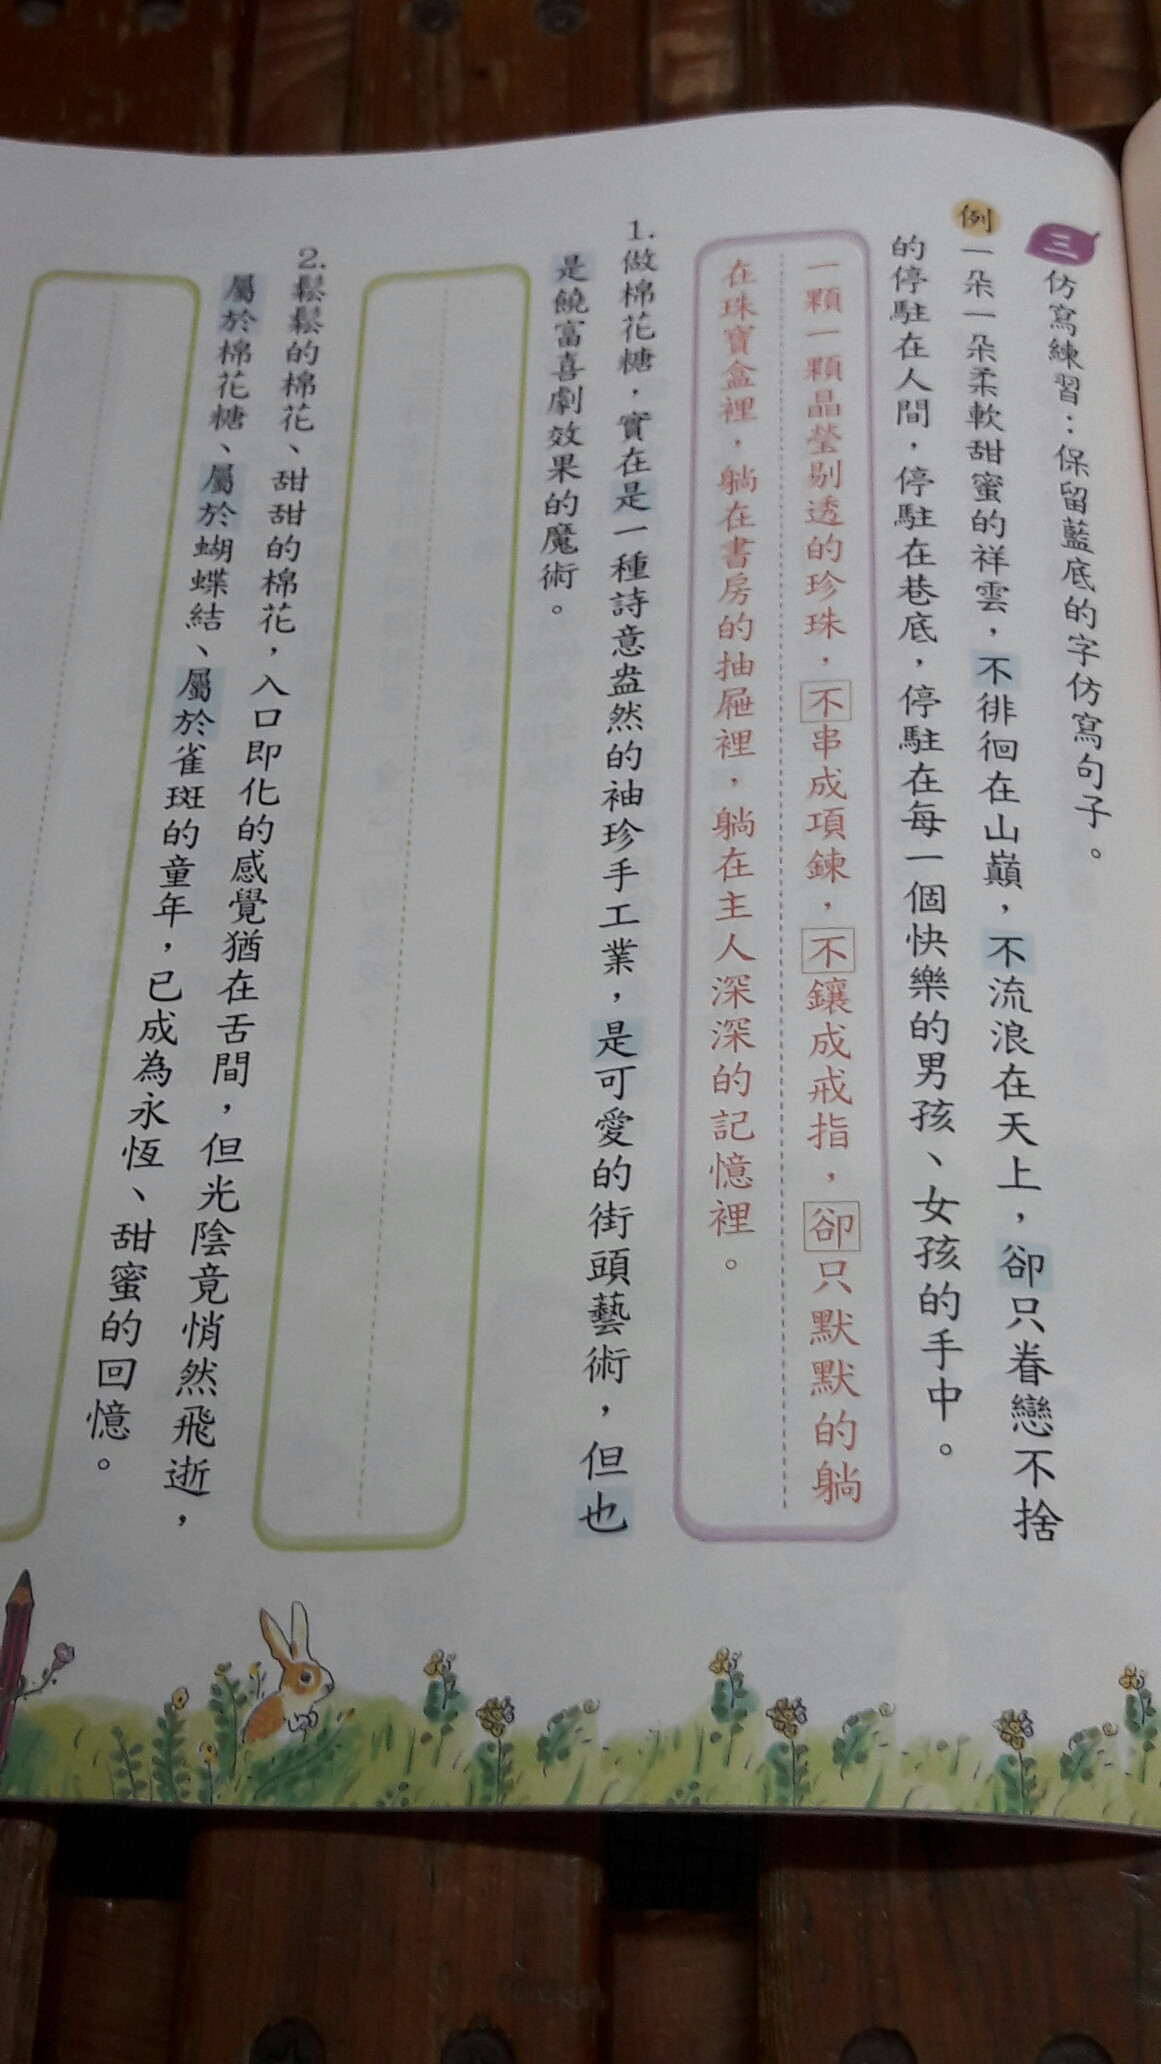 三 仿寫練習：保留藍底的字仿寫句子。
例 一朵一朵柔軟甜蜜的祥雲，不徘徊在山巔，不流浪在天上，卻只眷戀不捨
的停駐在人間，停駐在巷底，停駐在每一個快樂的男孩、女孩的手中。
一顆一顆晶瑩剔透的珍珠，不串成項鍊，不鑲成戒指，卻只默默的躺
在珠寶盒裡，躺在書房的抽屜裡，躺在主人深深的記憶裡。
1.做棉花糖，實在是一種詩意盎然的袖珍手工業，是可愛的街頭藝術，但也
是饒富喜劇效果的魔術。
2.鬆鬆的棉花、甜甜的棉花，入口即化的感覺猶在舌間，但光陰竟悄然飛逝，
屬於棉花糖、屬於蝴蝶結、屬於雀斑的童年，已成為永恆、甜蜜的回憶。